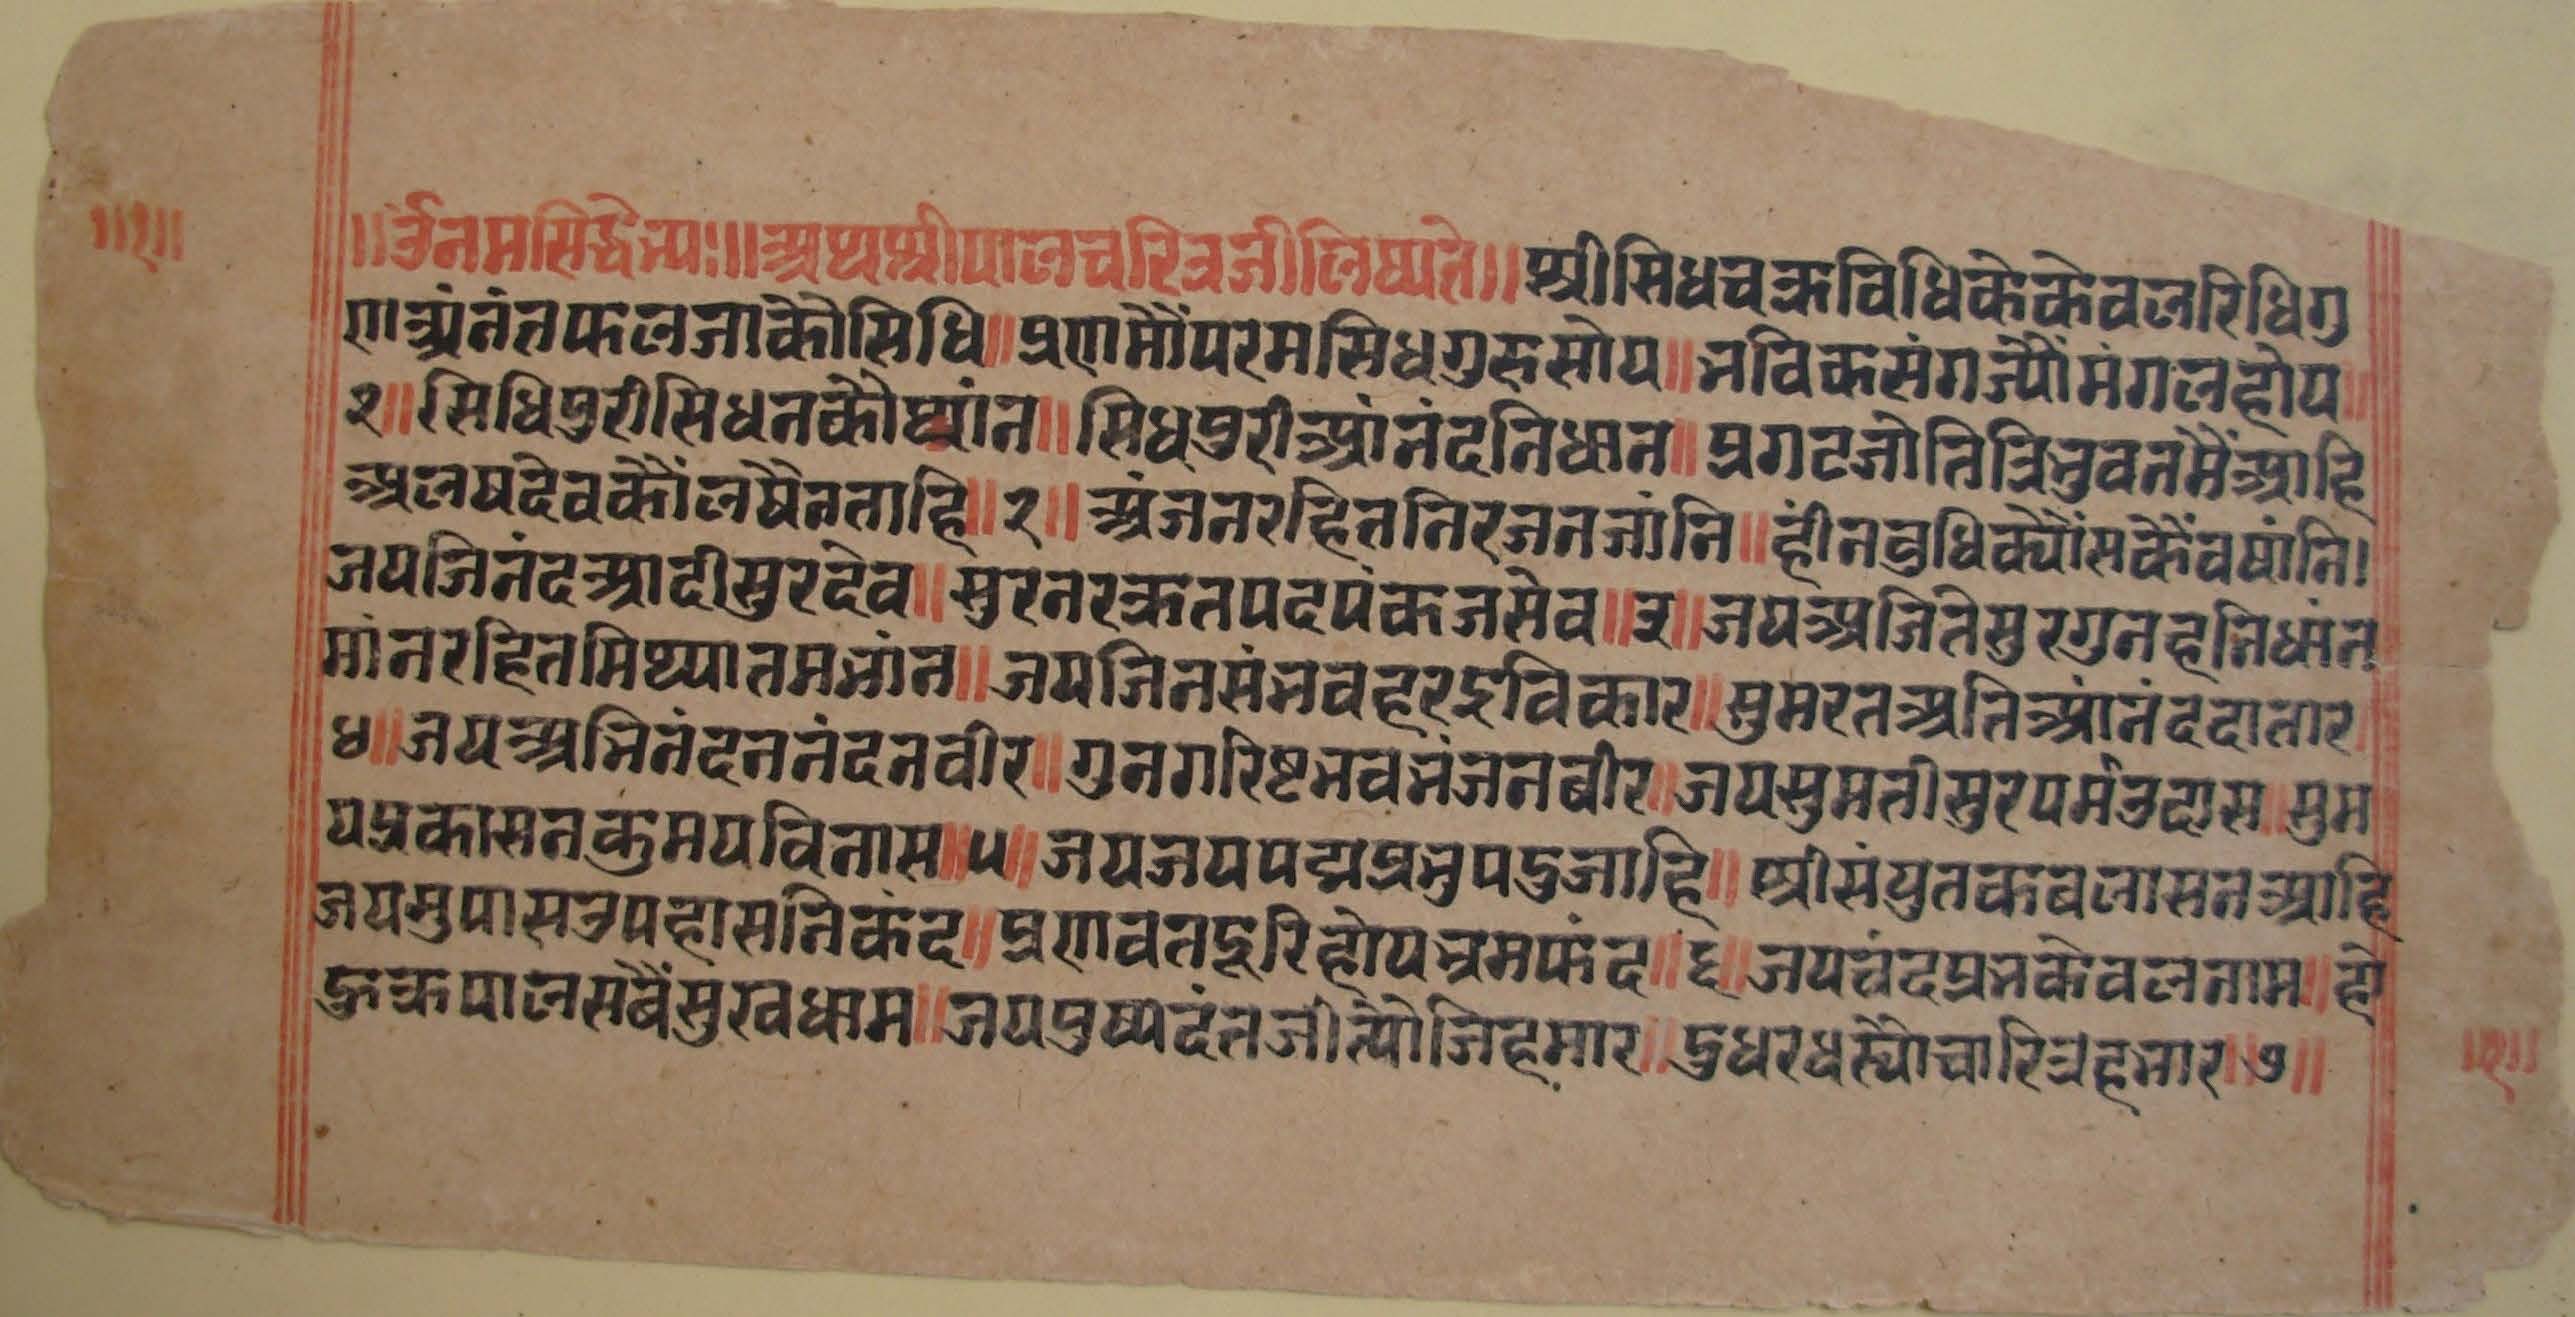 ॥१॥
॥ॐनमसिद्धेभ्यः॥॥अथश्रीपालचरित्रजीलिष्यते॥श्रीसिधचक्रविधिकेकेवलरिधिगु
णअंनंतफलजाकौसिधि॥प्रणमौंपरमसिधगुरुसोय॥भविकसंगज्यौंमंगलहोय॥
१॥सिधिपुरीसिधनकौध्यांन॥सिधपुरीआंनंदनिधान॥प्रगटजोतित्रिभुवनमैंआहि
अलषदेवकौंलषैनताहि॥२॥अंजनरहितनिरजनजांनि॥हींनबुधिक्यौंसकैंवषांनि।
जयजिनंदआदीसुरदेव॥सुरनरक्रतपदपंकजसेव॥३॥जयअजितेसुरगुनहनिधांन
मांनरहितमिथ्यातमभांन॥जयजिनसंभवहरइविकार॥सुमरतअतिआंनंददातार
४॥जयअभिनंदननंदनवीर॥गुनगरिष्टभवभंजनबीर॥जयसुमतीसुरपर्मउदास॥सुम
यप्रकासनकुमयविनास॥५॥जयजयपद्मप्रभुपदुजाहि॥श्रीसंयुतकबलासनआहि
जयसुपासउपहासनिकंद॥प्रणवतदूरिहोयभ्रमफंद॥६॥जयचंदप्रभकेवलनाम॥हो
हुक्रपालसबैंसुखधाम॥जयपुष्पदंतजीत्यौजिहमार॥दुधरधस्यौचारित्रहभार॥७॥
॥१॥